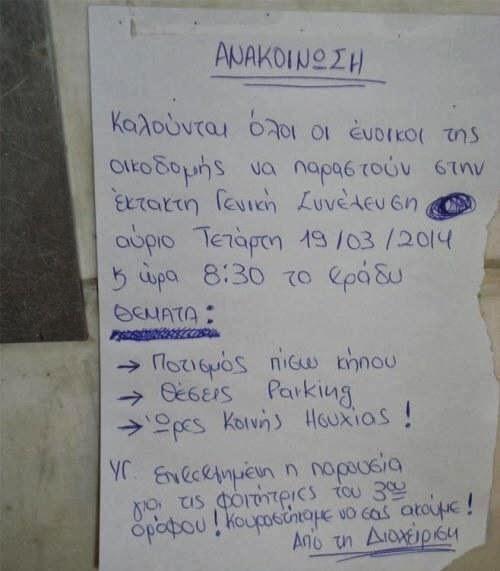 ΑΝΑΚΟΙΝΩΣΗ
Καλούνται όλοι οι ένοικοι της
οικοδομής να παραστούν στην
έκτακτη Γενική Συνέλευση
αύριο Τετάρτη 19/03/2014
ώρα 8:30 το βράδυ
ΘΕΜΑΤΑ:
→ Ποτισμός πίσω κήπου
→ Θέσεις Parking
→ Ώρες Κοινής Ησυχίας!
ΥΓ. η παρουσία
για τις φοιτήτριες του 3ου
ορόφου! Κουραστήκαμε να σας ακούμε!
Από τη Διαχείριση